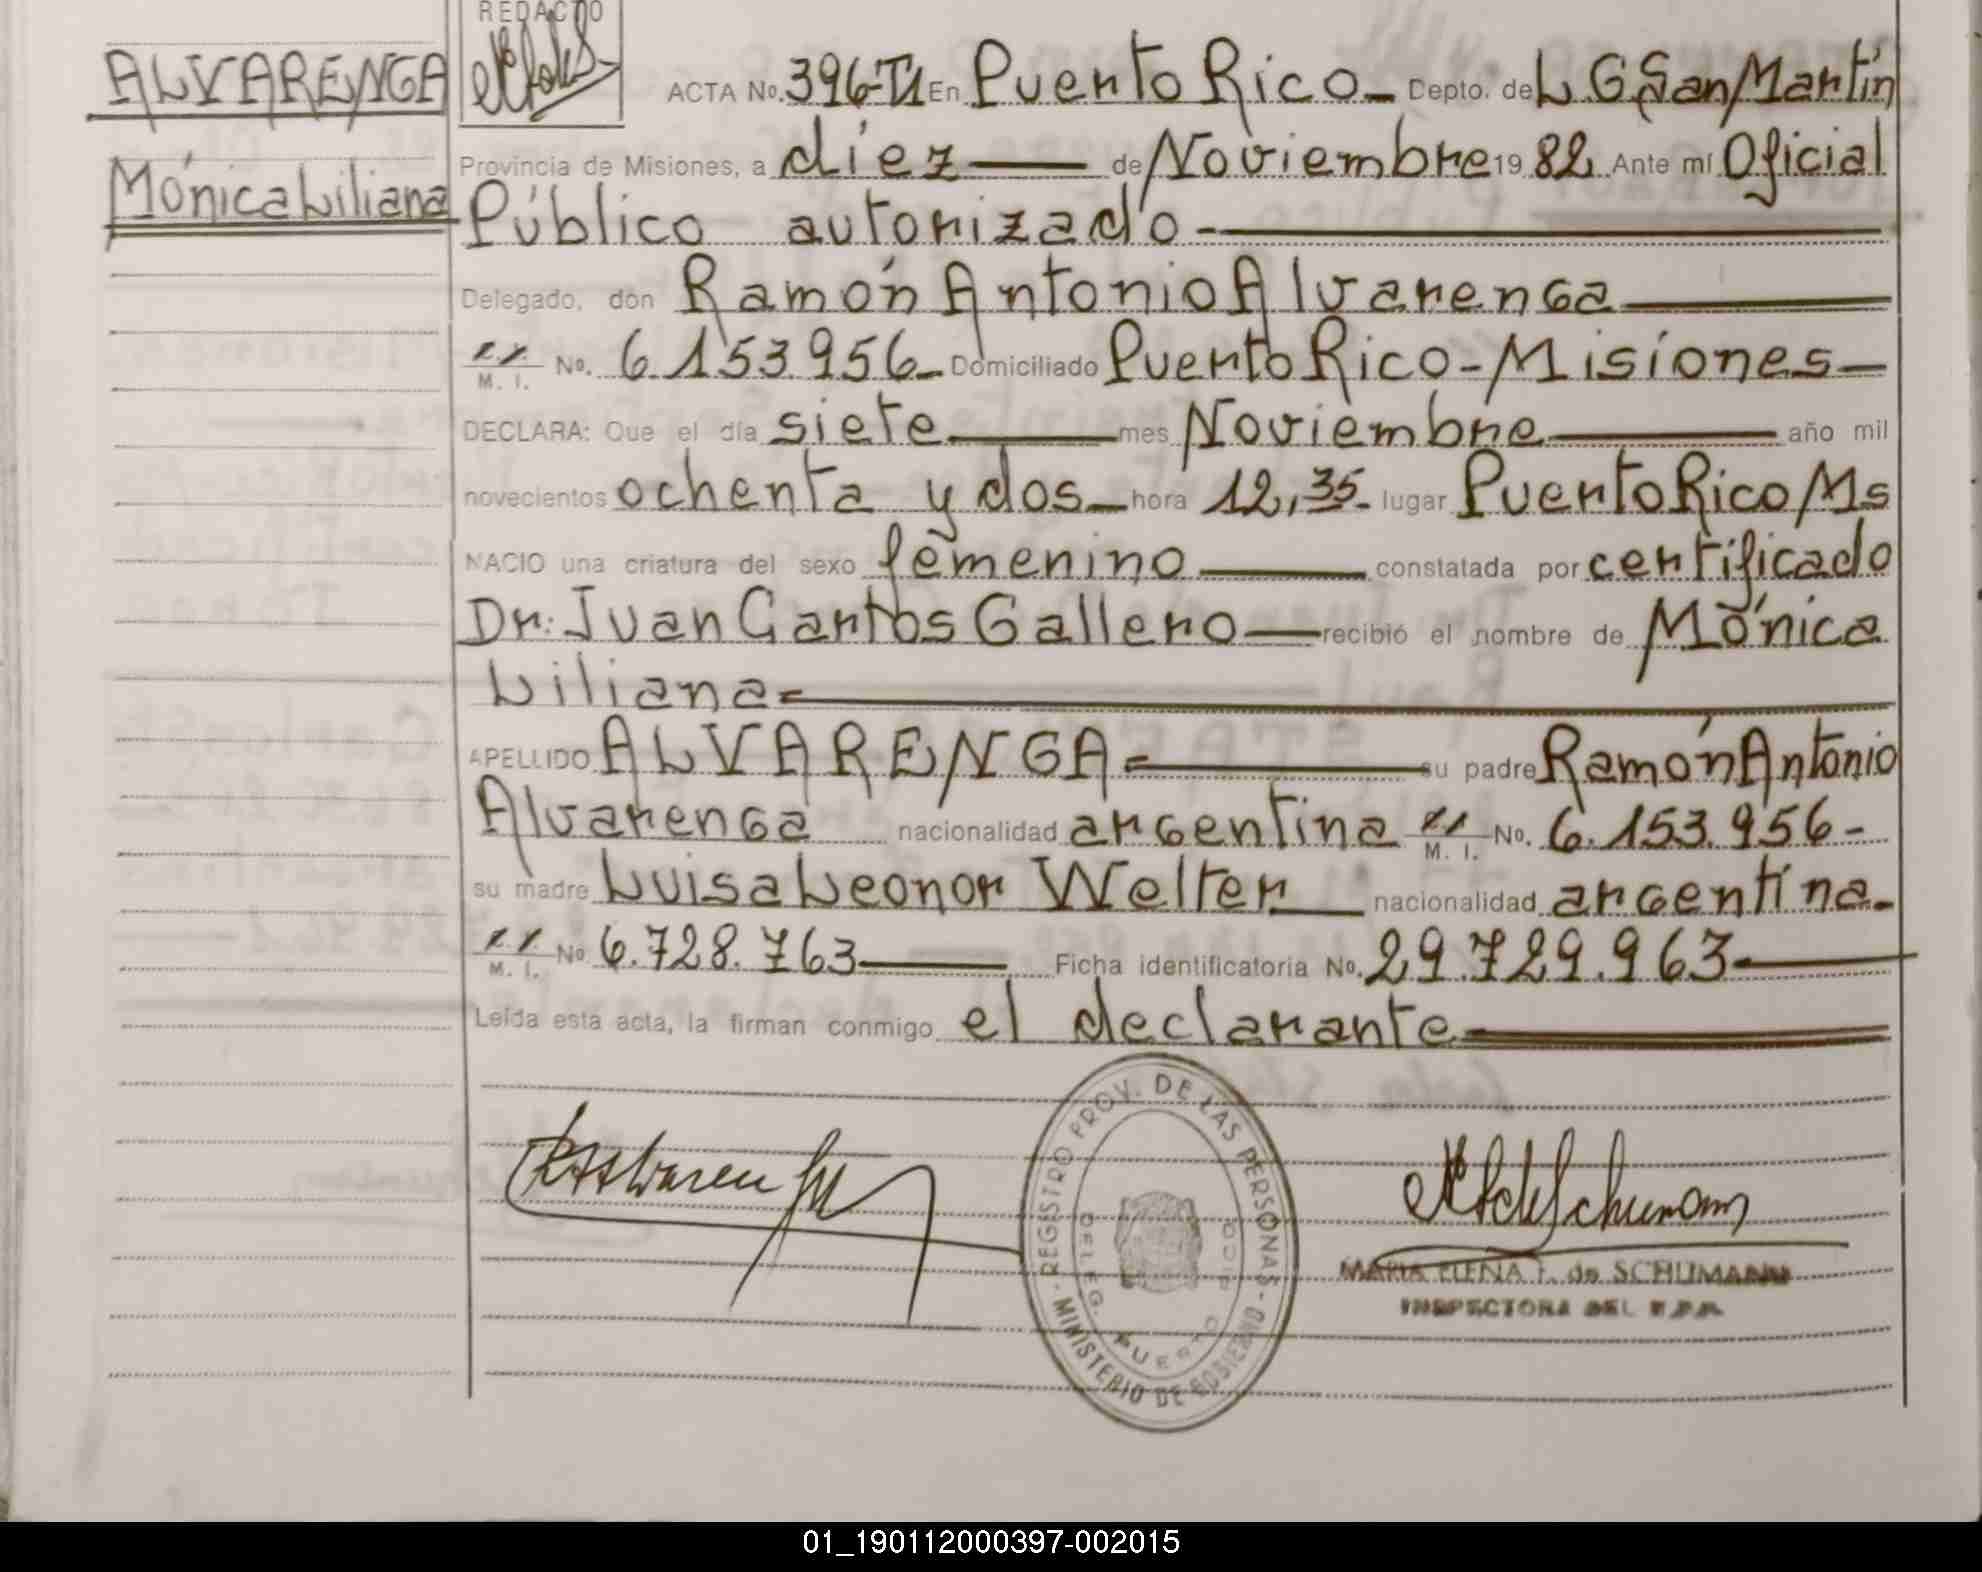 REDACTO
ALVARENGA
Mónica Liliana
ACTA No. 396-T1 En Puerto Rico - Depto. de L G San Martín
Provincia de Misiones, a diez de Noviembre 19 82 Ante mí Oficial
Público autorizado
Delegado, don Ramón Antonio Alvarenga
M. I. No. 6.153.956 - Domiciliado Puerto Rico - Misiones -
DECLARA: Que el día siete mes Noviembre año mil
novecientos ochenta y dos - hora 12,35 - lugar Puerto Rico Ms
NACIO una criatura del sexo femenino constatada por certificado
Dr: Juan Carlos Gallero recibió el nombre de Mónica
Liliana
APELLIDO ALVARENGA su padre Ramón Antonio
Alvarenga nacionalidad argentina M. I. No. 6.153.956 -
su madre Luisa Leonor Welter nacionalidad argentina -
M. I. No 6.728.763 Ficha identificatoria No. 29.729.963
Leída esta acta, la firman conmigo el declarante
REGISTRO PROV. DE LAS PERSONAS - MINISTERIO DE GOBIERNO -
DELEG. PUERTO RICO
MARIA ELENA F. de SCHUMANN
INSPECTORA DEL R.P.P.
01_190112000397-002015